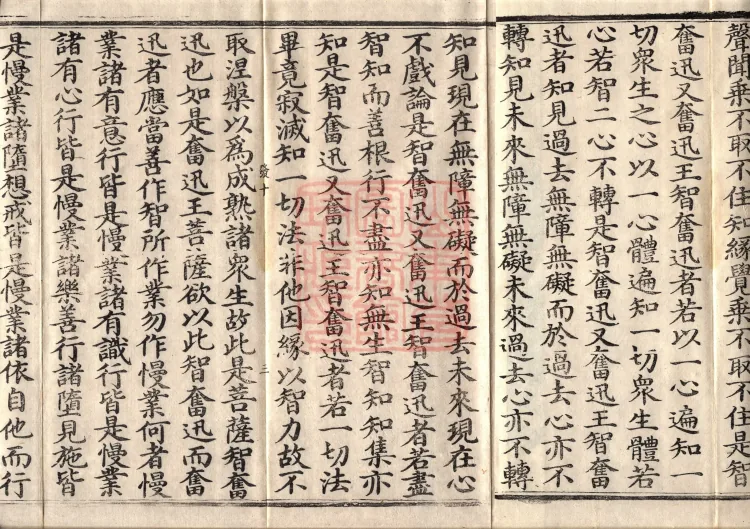 聲聞乗不取不住知緣覺乗不取不住是智
奮迅又奮迅王智奮迅者若以一心遍知一
切衆生之心以一心體遍知一切衆生體若
心若智二心不轉是智奮迅又奮迅王智奮
迅者知見過去無障無礙而於過去心亦不
轉知見未來無障無礙未來過去心亦不轉
知見現在無障無礙而於過去未來現在心
不戲論是智奮迅又奮迅王智奮迅者若盡
智知而善根行不盡亦知無生智知知集亦
知是智奮迅又奮迅王智奮迅者若一切法
畢竟寂滅知一切法非他因緣以智力故不
發十
三
取涅槃以爲成熟諸衆生故此是菩薩智奮
迅也如是奮迅王菩薩欲以此智奮迅而奮
迅者應當善作智所作業勿作慢業何者慢
業諸有意行皆是慢業諸有識行皆是慢業
諸有心行皆是慢業諸樂善行諸墮見施皆
是慢業諸墮想戒皆是慢業諸依自他而行